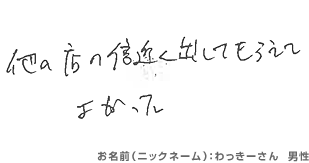 他の店の倍近く出してもらえて
よかった
お名前(ニックネーム):わっきーさん 男性